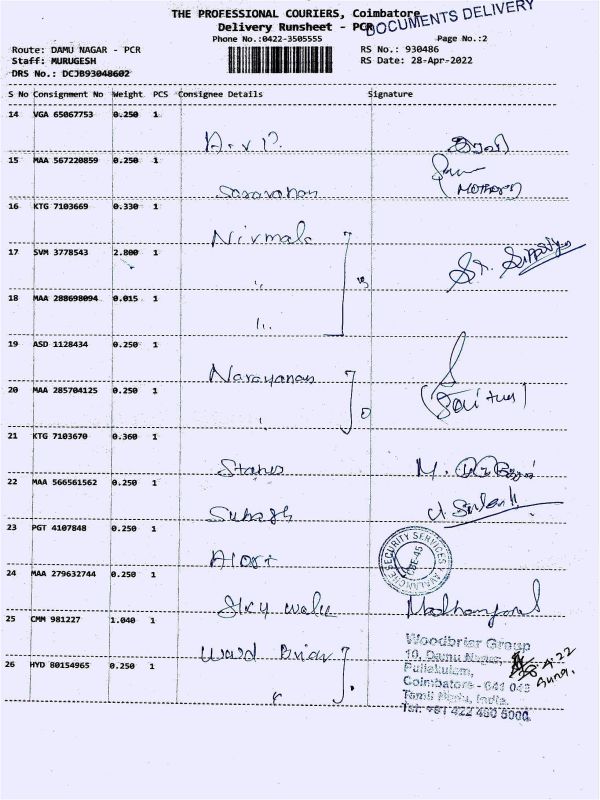 THE PROFESSIONAL COURIERS, Coimbatore
Delivery Runsheet - PCR
DOCUMENTS DELIVERY
Phone No.:0422-3505555
Page No.:2
Route: DAMU NAGAR - PCR
RS No.: 930486
Staff: MURUGESH
RS Date: 28-Apr-2022
DRS No.: DCJB93048602
S No Consignment No Weight PCS Consignee Details Signature
14 VGA 65067753 0.250 1
A.V.P.
15 MAA 567220859 0.250 1
Saravanan
16 KTG 7103669 0.330 1
Nirmala
17 SVM 3778543 2.800 1
"
18 MAA 288698094 0.015 1
"
19 ASD 1128434 0.250 1
Narayanan
20 MAA 285704125 0.250 1
"
21 KTG 7103670 0.360 1
Stanes
22 MAA 566561562 0.250 1
Subash
23 PGT 4107848 0.250 1
SECURITY SERVICES
24 MAA 279632744 0.250 1
25 CMM 981227 1.040 1
Woodbriar Group
10, Damu Nagar,
26 HYD 80154965 0.250 1
Puliakulam,
Coimbatore - 641 045
Tamil Nadu, India.
Tel: +91 422 430 5000.